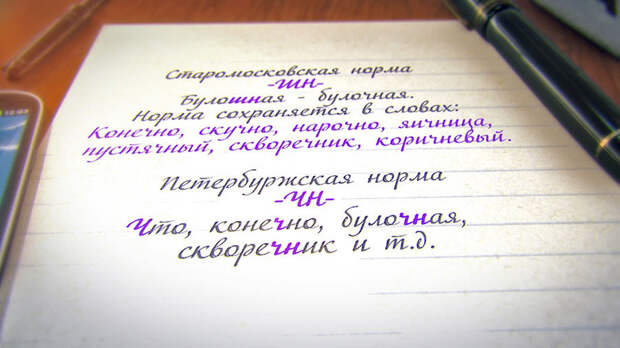 Старомосковская норма
-ШН-
Булошная - булочная.
Норма сохраняется в словах:
Конечно, скучно, нарочно, яичница,
пустячный, скворечник, коричневый.
Петербуржская норма
-ЧН-
Что, конечно, булочная,
скворечник и т.д.